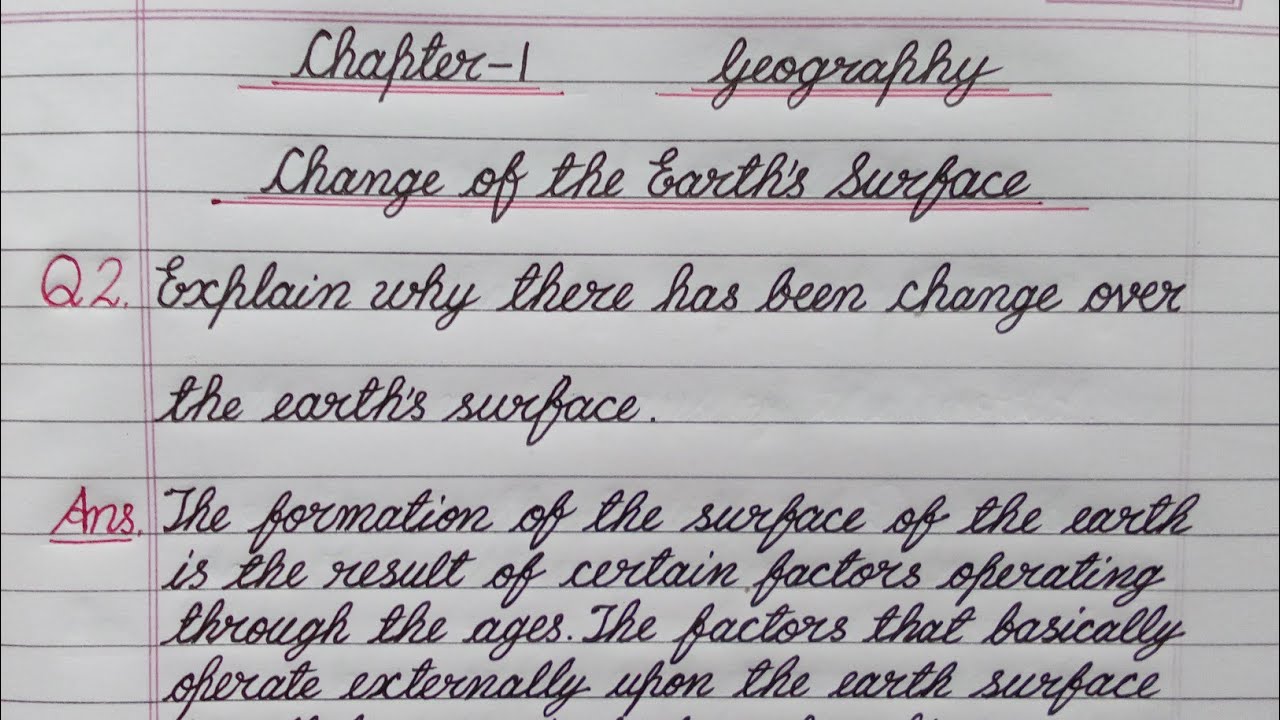 Chapter-1 Geography
Change of the Earth's Surface
Q2. Explain why there has been change over
the earth's surface.
Ans. The formation of the surface of the earth
is the result of certain factors operating
through the ages. The factors that basically
operate externally upon the earth surface